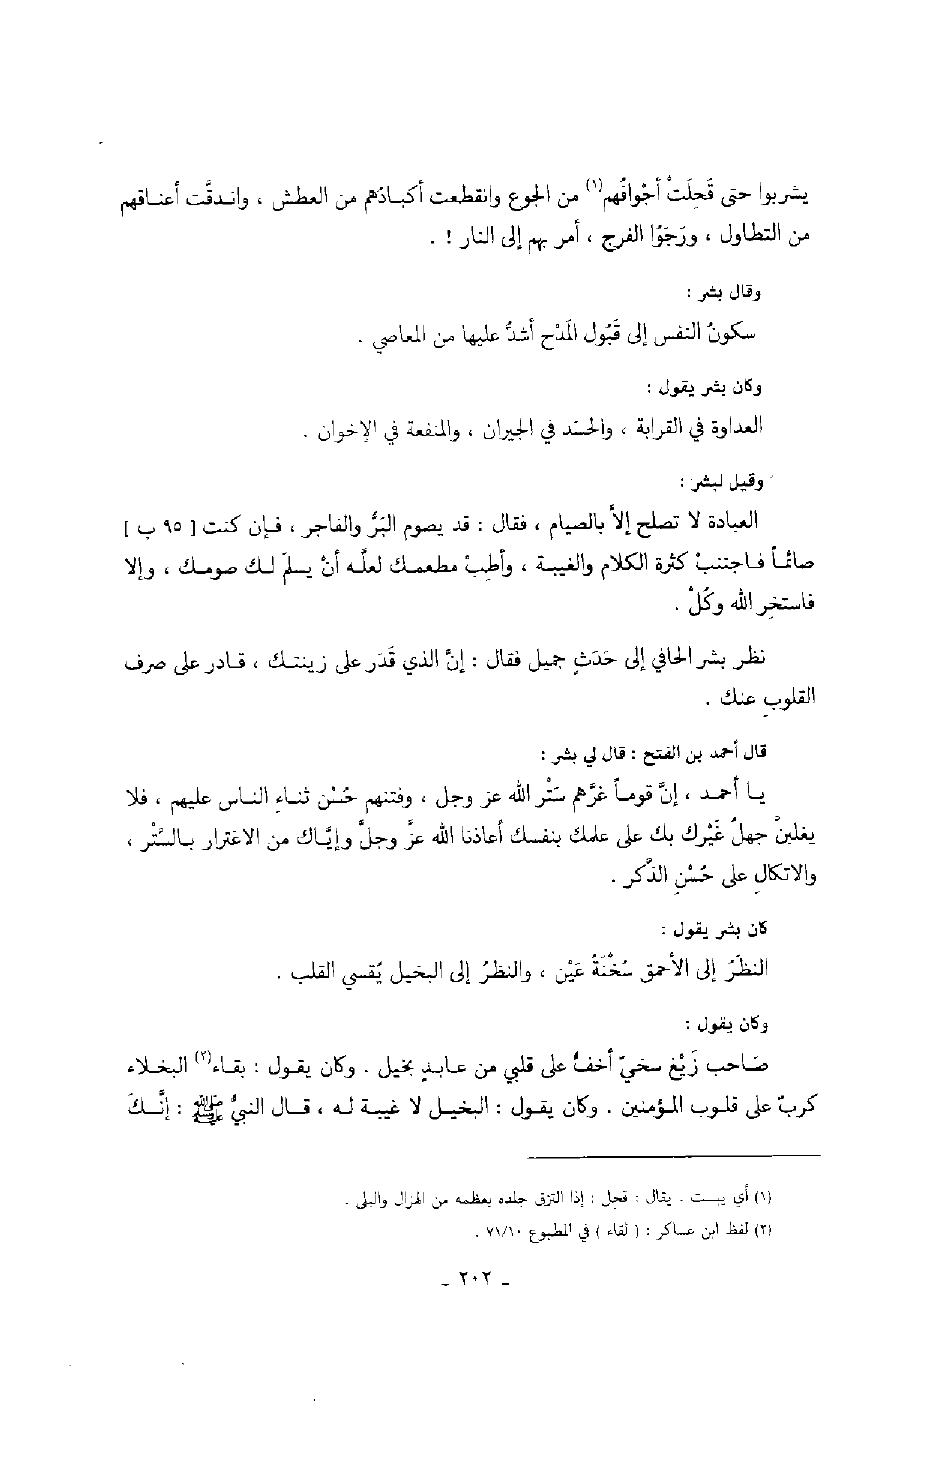 يشربوا حتى قَحِلَتْ أجْوافُهم(١) من الجوع وانقطعت أكبادُهم من العطش ، واندقَّت أعناقهم
من التطاول ، ورَجَوْا الفرج ، أمر بهم إلى النار ! .
وقال بشر :
سكونُ النفس إلى قَبُول المَدْح أشدُّ عليها من المعاصي .
وكان بشر يقول :
العداوة في القرابة ، والحَسَد في الجيران ، والمنفعة في الإخوان .
وقيل لبشر :
العبادة لا تصلح إلاّ بالصيام ، فقال : قد يصوم البَرُّ والفاجر ، فإن كنت [ ٩٥ ب ]
صائماً فاجتنبْ كثرة الكلام والغيبة ، وأطِبْ مطعمك لعلَّه أنْ يسلَمَ لك صومك ، وإلا
فاستخِرِ الله وكُلْ .
نظر بشر الحافي إلى حَدَثٍ جميل فقال : إنَّ الذي قَدَر على زينتك ، قادر على صرف
القلوبِ عنك .
قال أحمد بن الفتح : قال لي بشر :
يا أحمد ، إنَّ قوماً غرَّهم سَتْر الله عز وجل ، وفتنهم حُسْن ثناء الناس عليهم ، فلا
يغلبنَّ جهلُ غَيْرك بك على علمك بنفسك أعاذنا الله عزَّ وجلَّ وإيَّاك من الاغترار بالسَّتْر ،
والاتكالِ على حُسْنِ الذِّكر .
كان بشر يقول :
النظَرُ إلى الأحمق سُخْنَةُ عَيْن ، والنظرُ إلى البخيل يُقسي القلب .
وكان يقول :
صَاحب زَيْغ سخيّ أخفُّ على قلبي من عابدٍ بخيل . وكان يقول : بقاء(٢) البخلاء
كربٌ على قلوب المؤمنين . وكان يقول : البخيل لا غيبة له ، قال النبيُّ ﷺ : إنَّكَ
(١) أي يبست . يقال : قحل : إذا التزق جلده بعظمه من الهزال والبلى .
(٢) لفظ ابن عساكر : ( لقاء ) في المطبوع ٧١/١٠ .
ـ ٢٠٢ ـ